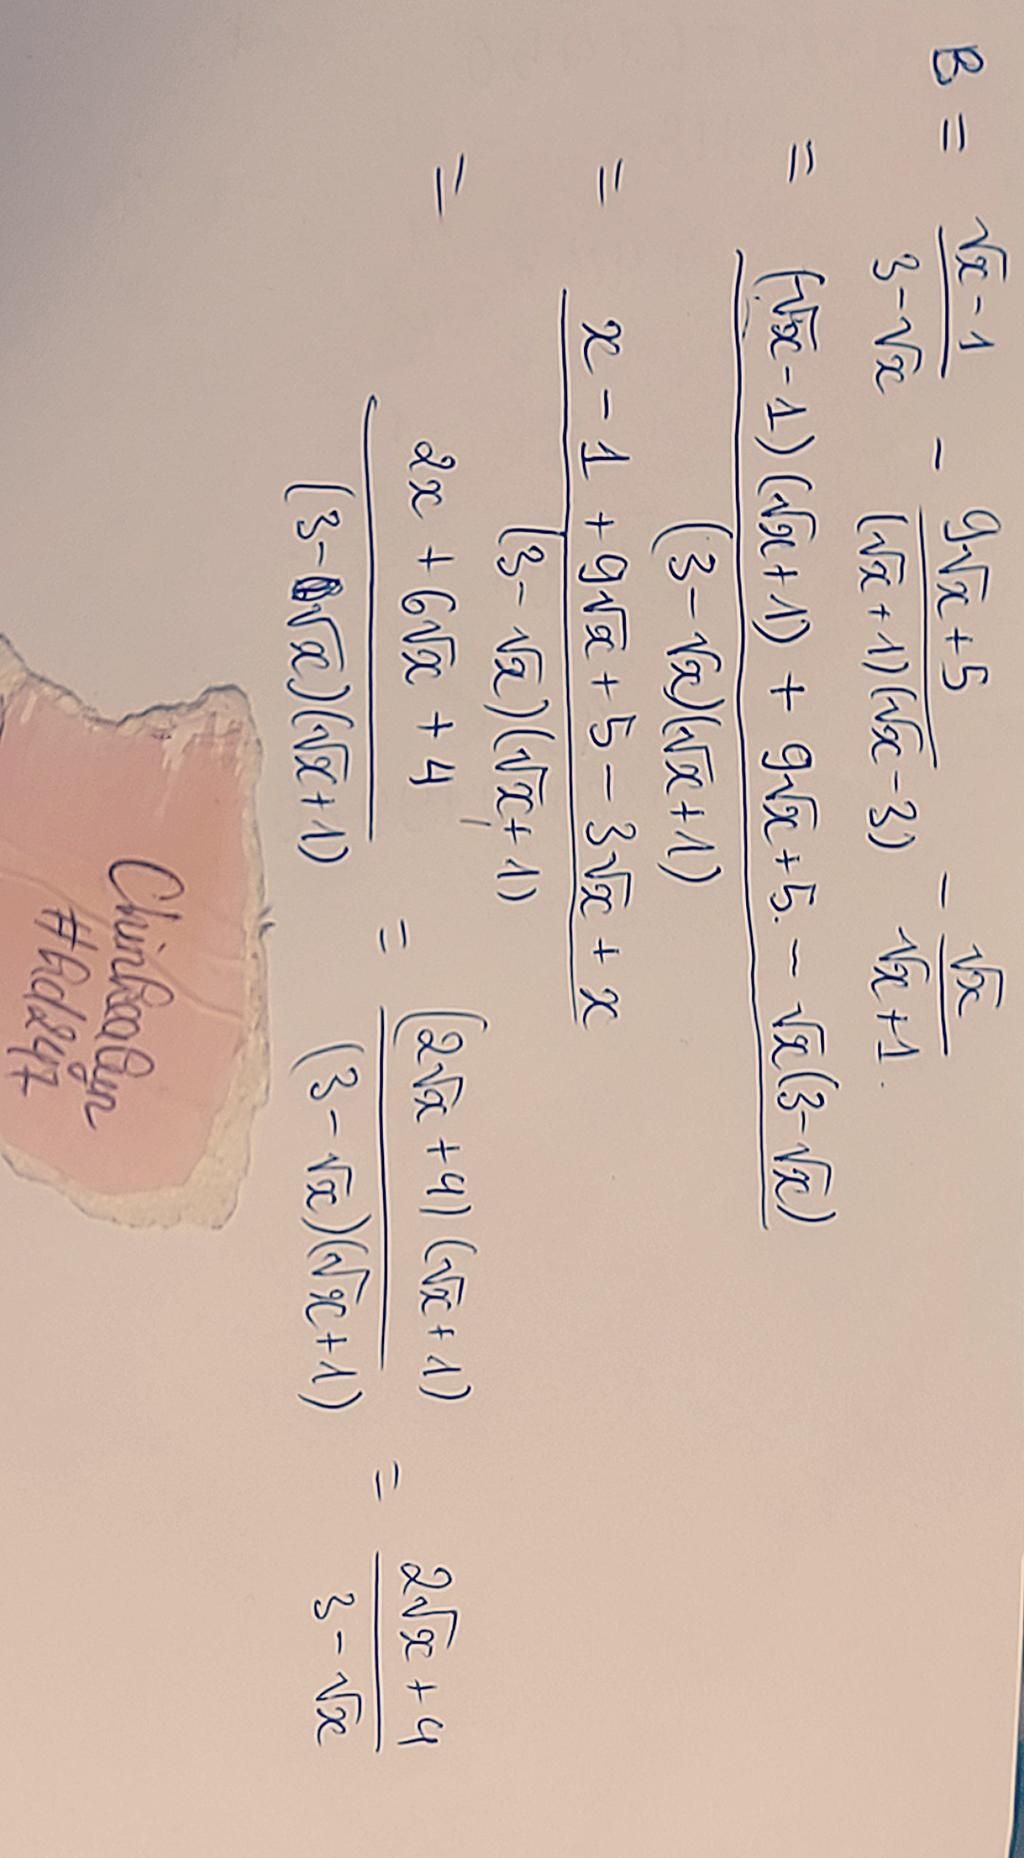 B = (√x - 1)/(3 - √x) - (9√x + 5)/((√x + 1)(√x - 3)) - √x/(√x + 1).
= ((√x - 1)(√x + 1) + 9√x + 5 - √x(3 - √x))/((3 - √x)(√x + 1))
= (x - 1 + 9√x + 5 - 3√x + x)/((3 - √x)(√x + 1))
= (2x + 6√x + 4)/((3 - √x)(√x + 1)) = ((2√x + 4)(√x + 1))/((3 - √x)(√x + 1)) = (2√x + 4)/(3 - √x)